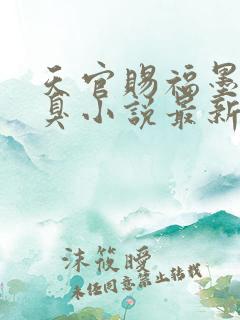 天官赐福墨
真小说最新
沫筱暧
未任同意禁止转载